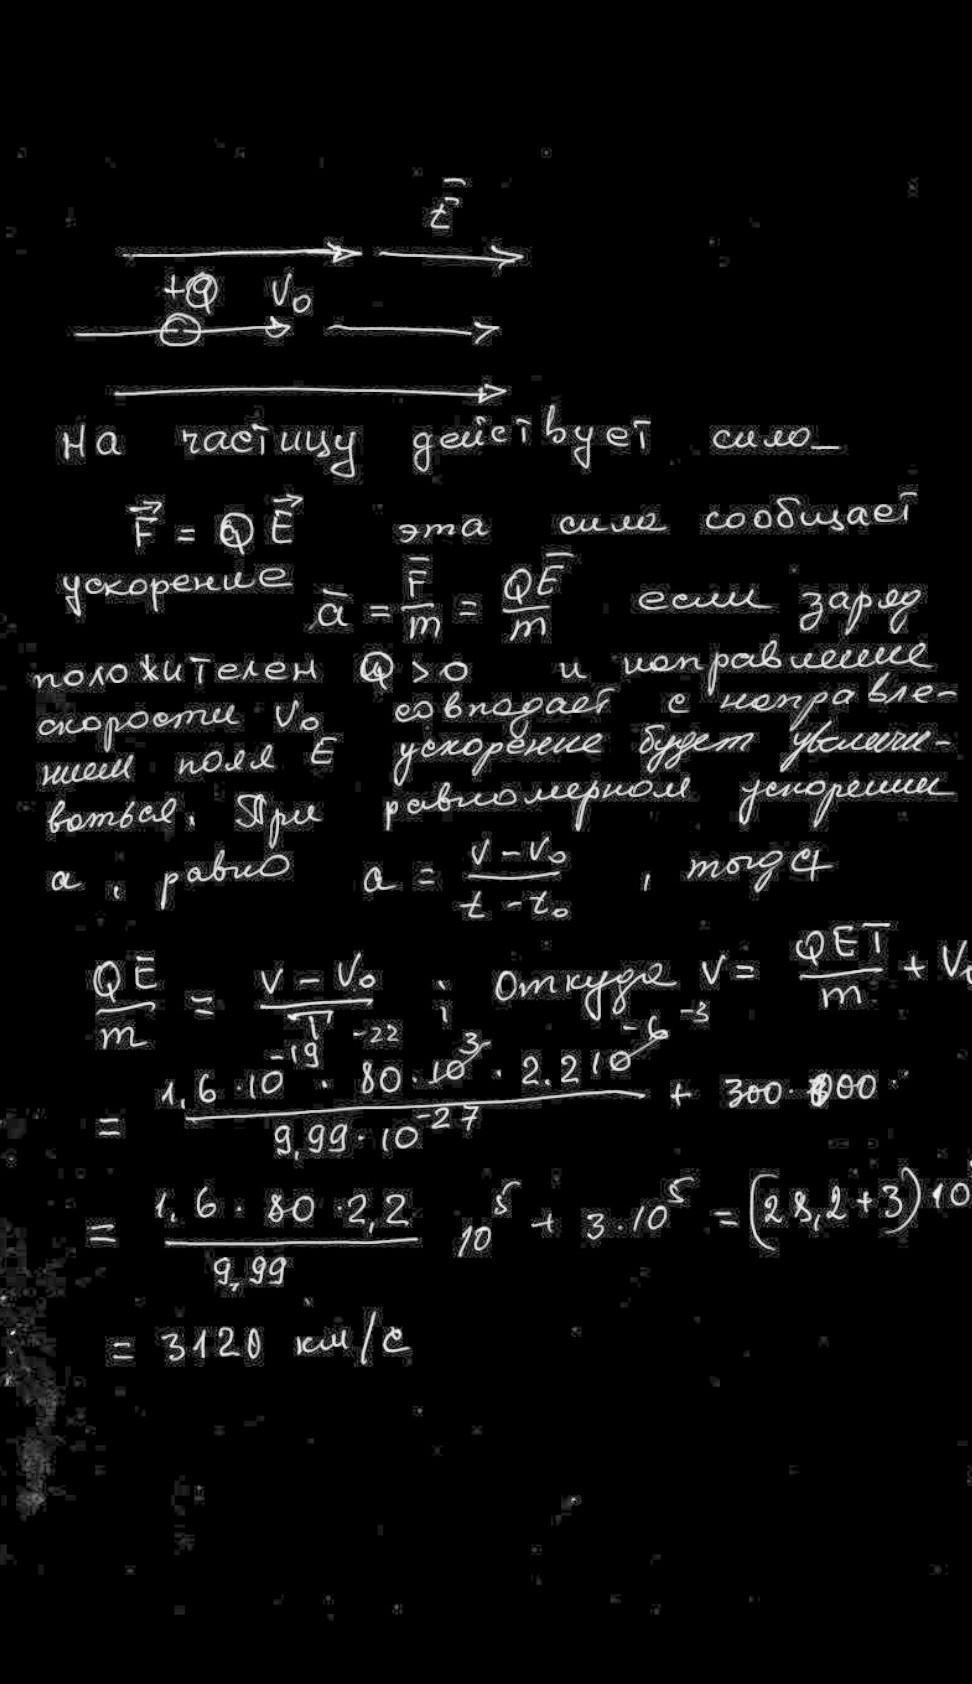 E
+Q V₀
На частицу действует сила
F = QE эта сила сообщает
ускорение a = F/m = QE/m если заряд
положителен Q > 0 и направление
скорости V₀ совпадает с направле-
нием поля E ускорение будет увеличи-
ваться. При равномерном ускорении
a, равно a = (V - V₀)/(t - t₀), тогда
QE/m = (V - V₀)/T ; Откуда V = QET/m + V₀
-22 -3
= (1,6 · 10⁻¹⁹ · 80 · 10³ · 2.2 10⁻⁶)/(9,99 · 10⁻²⁷) + 300 · 000
= (1,6 · 80 · 2,2)/(9,99) 10⁵ + 3 · 10⁵ = (28,2 + 3) 10
= 3120 км/с